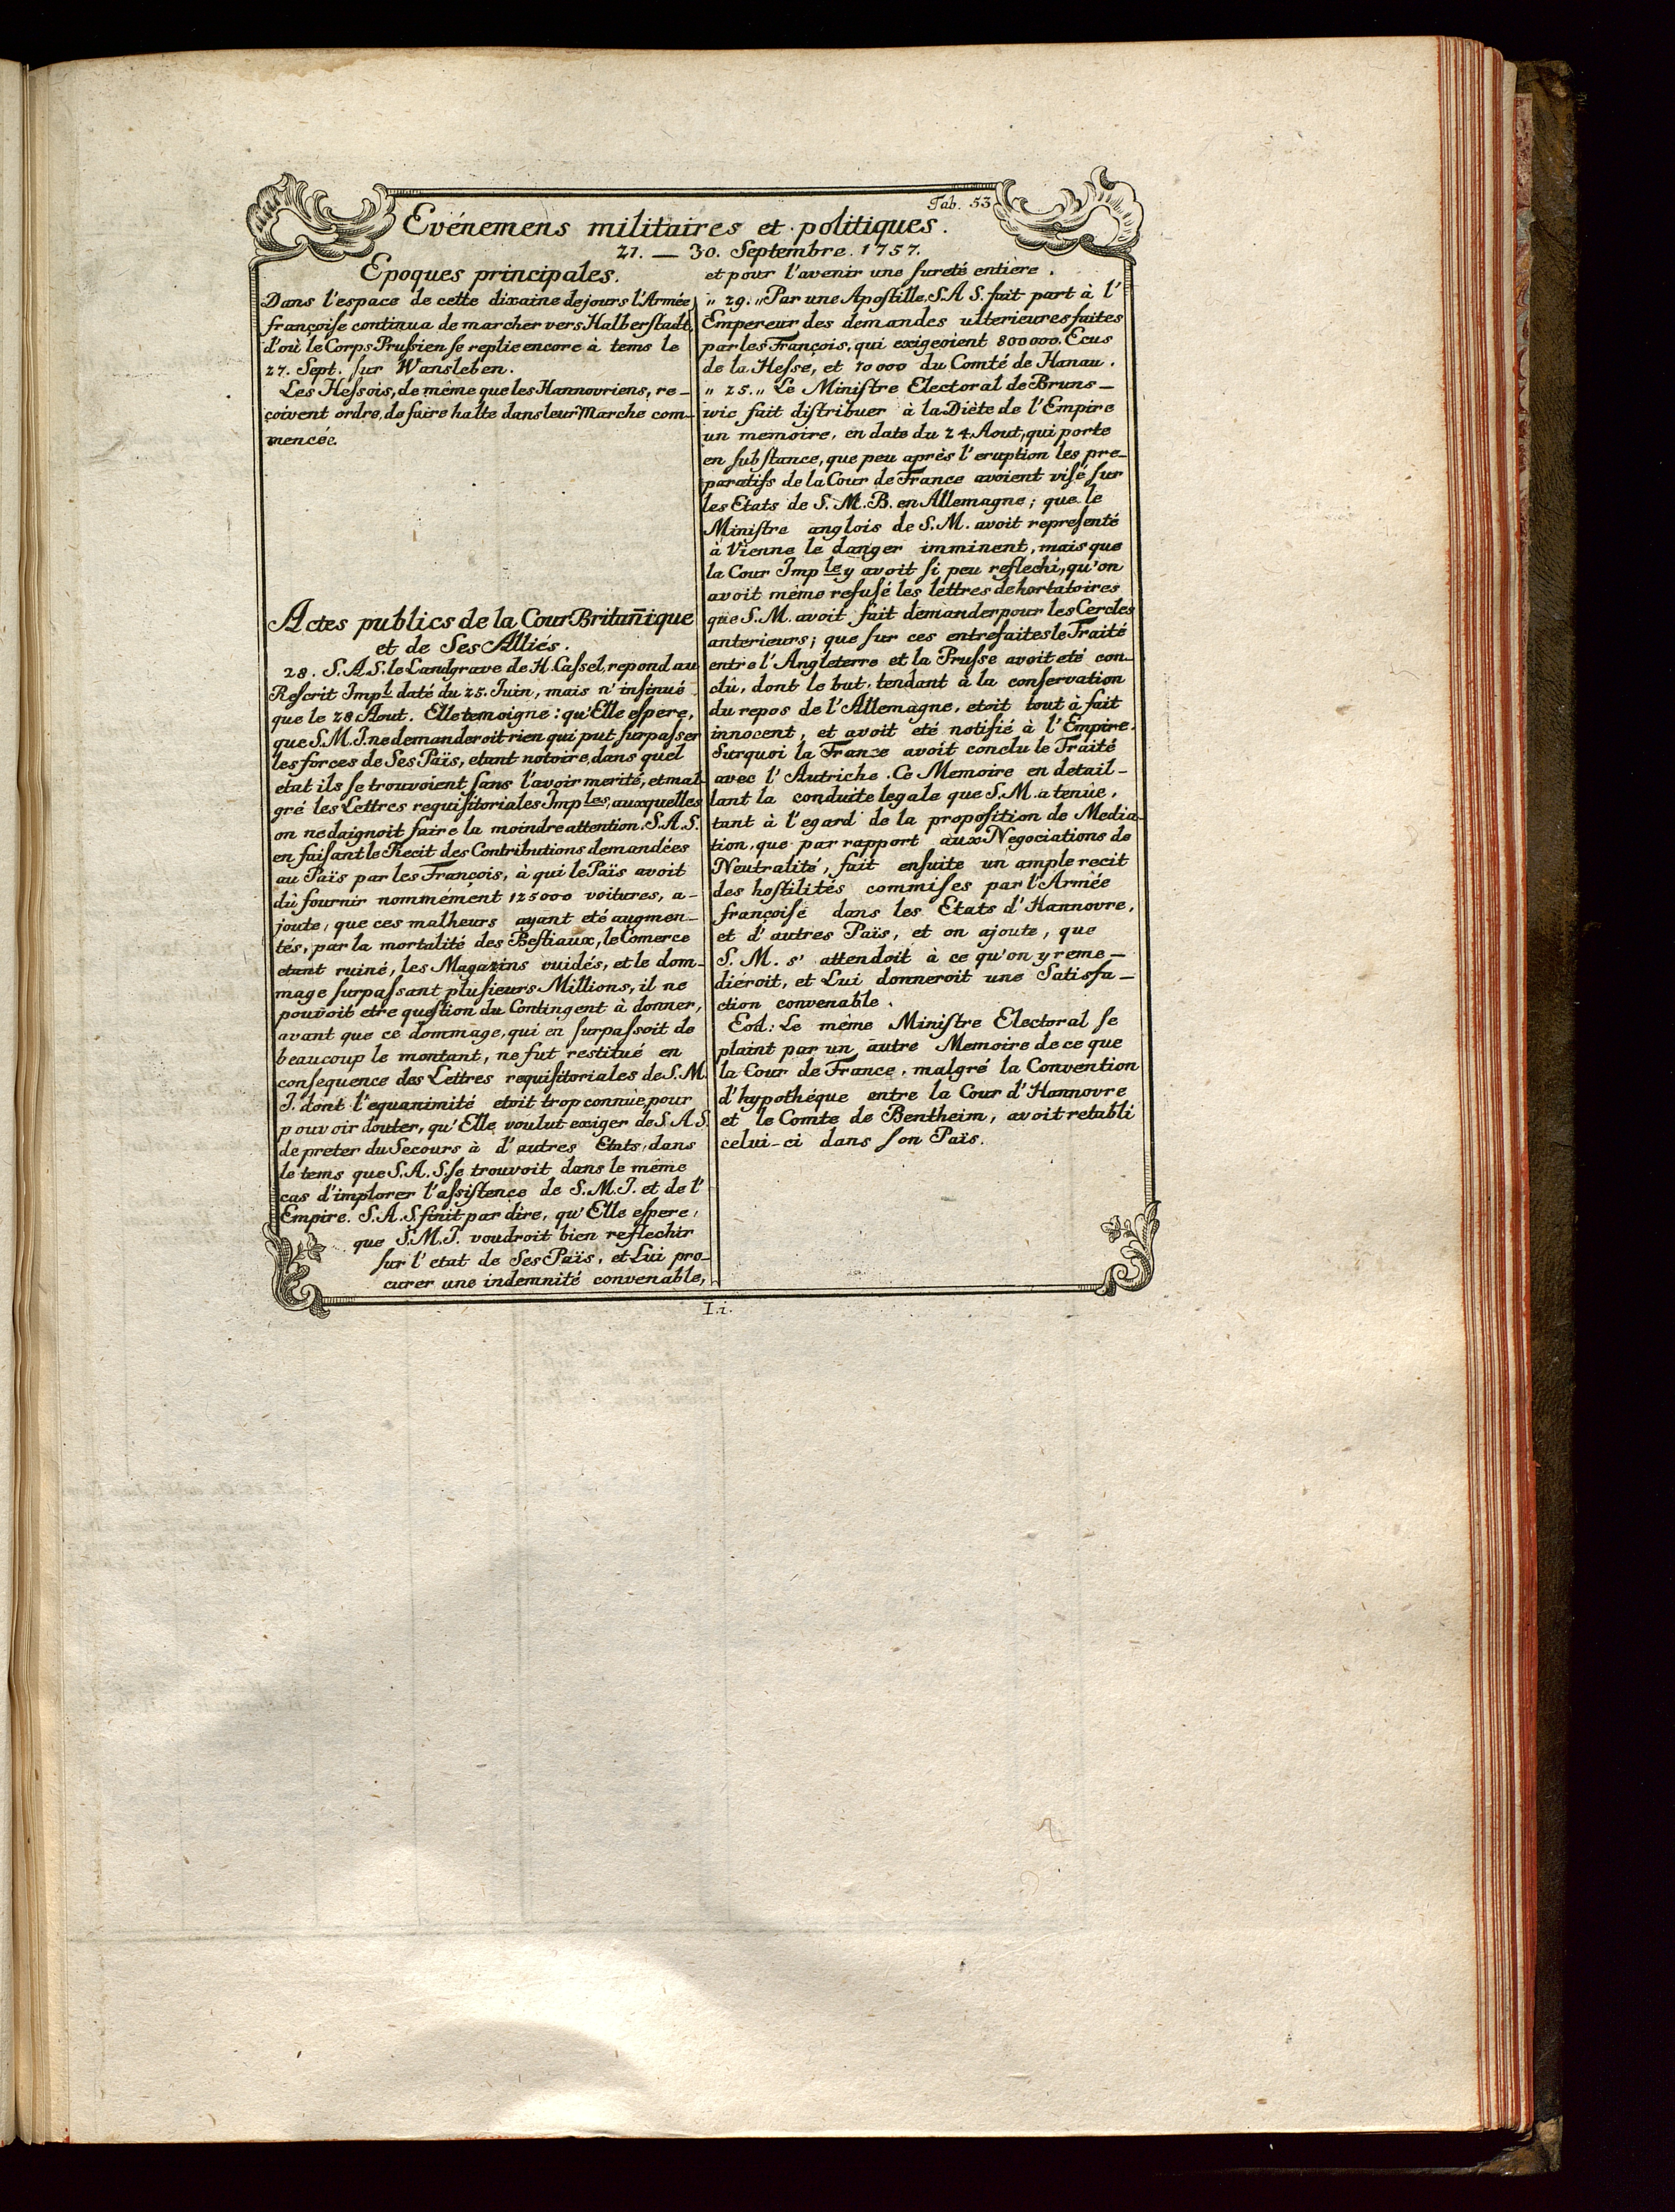 Tab. 53
Evénemens militaires et politiques.
21. — 30. Septembre. 1757.
Epoques principales.
Dans l'espace de cette dixaine de jours l'Armée
françoiſe continua de marcher vers Halberſtadt,
d'où le Corps Pruſsien ſe replie encore à tems le
27. Sept. ſur Wansleben.
Les Heſsois, de même que les Hannovriens, re-
çoivent ordre, de faire halte dans leur Marche com-
mencée.
Actes publics de la Cour Britañique
et de Ses Alliés.
28. S. A. S. le Landgrave de H. Caſsel, repond au
Reſcrit Impl. daté du 25. Juin, mais n'inſinué
que le 28 Aout. Elle temoigne: qu'Elle eſpere,
que S. M. I. ne demanderoit rien qui put ſurpaſser
les forces de Ses Païs, etant notoire, dans quel
etat ils ſe trouvoient ſans l'avoir merité, et mal-
gré les Lettres requiſitoriales Imples, auxquelles
on ne daignoit faire la moindre attention. S. A. S.
en faiſant le Recit des Contributions demandées
au Païs par les François, à qui le Païs avoit
dû fournir nommément 125000 voitures, a-
joute, que ces malheurs ayant eté augmen-
tés, par la mortalité des Beſtiaux, le Comerce
etant ruiné, les Magazins vuidés, et le dom-
mage ſurpaſsant pluſieurs Millions, il ne
pouvoit etre queſtion du Contingent à donner,
avant que ce dommage, qui en ſurpaſsoit de
beaucoup le montant, ne fut reſtitué en
conſequence des Lettres requiſitoriales de S. M.
I. dont l'equanimité etoit trop connüe, pour
pouvoir douter, qu'Elle voulut exiger de S. A. S.
de preter du Secours à d'autres Etats, dans
le tems que S. A. S. ſe trouvoit dans le même
cas d'implorer l'aſsiſtence de S. M. I. et de l'
Empire. S. A. S. finit par dire, qu'Elle eſpere,
que S. M. I. voudroit bien reflechir
ſur l'etat de Ses Païs, et Lui pro-
curer une indemnité convenable,
et pour l'avenir une ſureté entiere.
„ 29. „ Par une Apoſtille, S. A. S. fait part à l'
Empereur des demandes ulterieures faites
par les François, qui exigeoient 800000. Ecus
de la Heſse, et 70000 du Comté de Hanau.
„ 25. „ Le Miniſtre Electoral de Bruns-
wic fait diſtribuer à la Diète de l'Empire
un memoire, en date du 24. Aout, qui porte
en ſubſtance, que peu après l'eruption les pre-
paratifs de la Cour de France avoient viſé ſur
les Etats de S. M. B. en Allemagne; que le
Miniſtre anglois de S. M. avoit repreſenté
à Vienne le danger imminent, mais que
la Cour Imple y avoit ſi peu reflechi, qu'on
avoit même refuſé les lettres dehortatoires
que S. M. avoit fait demander pour les Cercles
anterieurs; que ſur ces entrefaites le Traité
entre l'Angleterre et la Pruſse avoit eté con-
clû, dont le but, tendant à la conſervation
du repos de l'Allemagne, etoit tout à fait
innocent, et avoit eté notifié à l'Empire.
Surquoi la France avoit conclu le Traité
avec l'Autriche. Ce Memoire en detail-
lant la conduite legale que S. M. a tenüe,
tant à l'egard de la propoſition de Media-
tion, que par rapport aux Negociations de
Neutralité, fait enſuite un ample recit
des hoſtilités commiſes par l'Armée
françoiſe dans les Etats d'Hannovre,
et d'autres Païs, et on ajoute, que
S. M. s'attendoit à ce qu'on y reme-
diéroit, et Lui donneroit une Satisfa-
ction convenable.
Eod: Le même Miniſtre Electoral ſe
plaint par un autre Memoire de ce que
la Cour de France, malgré la Convention
d'hypothéque entre la Cour d'Hannovre
et le Comte de Bentheim, avoit retabli
celui-ci dans ſon Païs.
I. i.